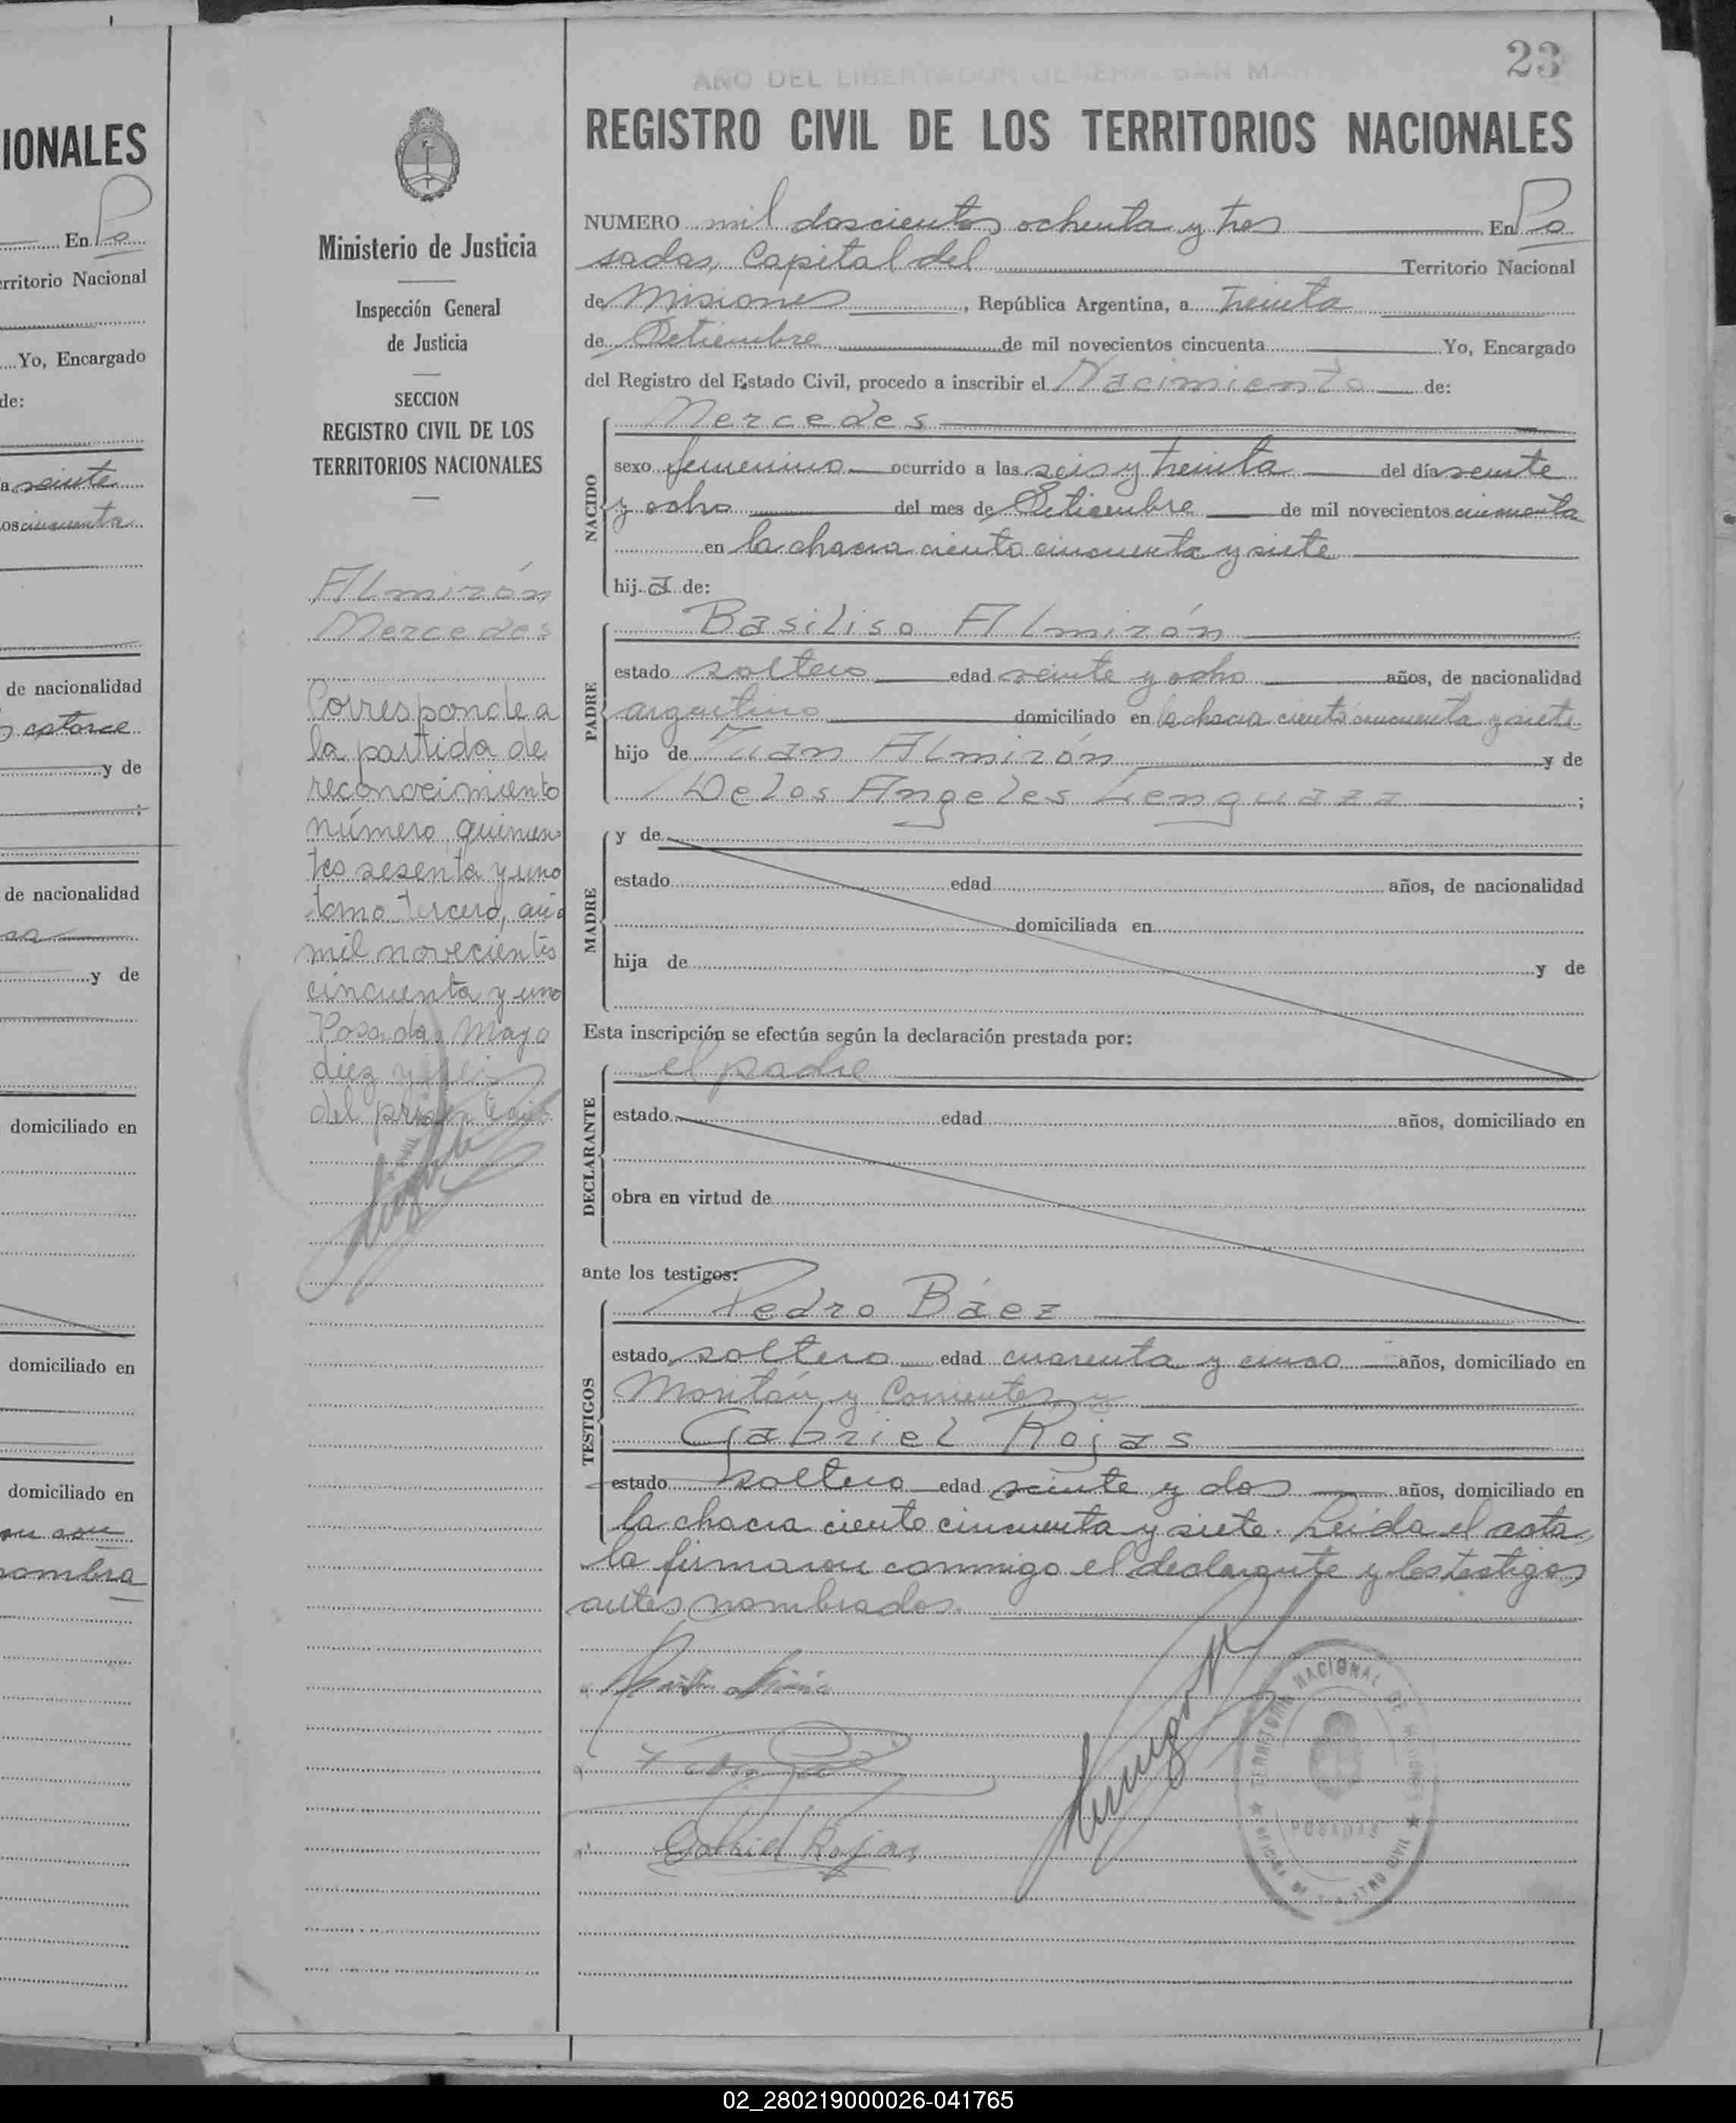 IONALES
En Po
erritorio Nacional
Yo, Encargado
de:
a veinte
os cincuenta
de nacionalidad
catorce
y de
de nacionalidad
y de
domiciliado en
domiciliado en
domiciliado en
nombra
Ministerio de Justicia
Inspección General
de Justicia
SECCION
REGISTRO CIVIL DE LOS
TERRITORIOS NACIONALES
Almirón
Mercedes
Corresponde a
la partida de
reconocimiento
número quinien
tos sesenta y uno
tomo tercero, año
mil novecientos
cincuenta y uno
Posadas Mayo
diez y
del
23
AÑO DEL LIBERTADOR GENERAL SAN MAR
REGISTRO CIVIL DE LOS TERRITORIOS NACIONALES
NUMERO mil doscientos ochenta y tres En Po
sadas, Capital del Territorio Nacional
de Misiones, República Argentina, a Treinta
de Setiembre de mil novecientos cincuenta Yo, Encargado
del Registro del Estado Civil, procedo a inscribir el Nacimiento de:
Mercedes
NACIDO
sexo femenino ocurrido a las seis y treinta del día veinte
y ocho del mes de Setiembre de mil novecientos cincuenta
en la chacra ciento cincuenta y siete
hij a de:
Basiliso Almirón
PADRE
estado soltero edad veinte y ocho años, de nacionalidad
argentino domiciliado en la chacra ciento cincuenta y siete
hijo de Juan Almirón y de
De los Angeles Lenguaza ;
MADRE
y de
estado edad años, de nacionalidad
domiciliada en
hija de y de
Esta inscripción se efectúa según la declaración prestada por:
el padre
DECLARANTE
estado edad años, domiciliado en
obra en virtud de
ante los testigos:
Pedro Báez
TESTIGOS
estado soltero edad cuarenta y cinco años, domiciliado en
y Corrientes y
Gabriel Rojas
estado soltero edad veinte y dos años, domiciliado en
la chacra ciento cincuenta y siete. Leída el acta,
la firmaron conmigo el declarante y los testigos
antes nombrados.
Gabriel Rojas
TERRITORIO NACIONAL DE MISIONES
POSADAS
OFICINA DE REGISTRO CIVIL
02_280219000026-041765